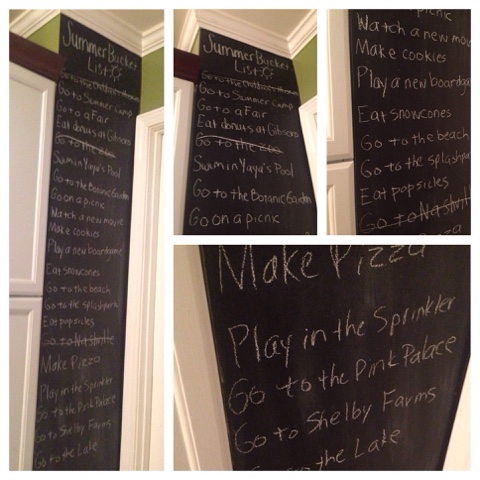 Summer Bucket
List
Go to the
Go to Summer Camp
Go to a Fair
Eat donuts at Gibsons
Go to the Zoo
Swim in Yaya's Pool
Go to the Botanic Garden
Go on a picnic
Watch a new movie
Make cookies
Play a new boardgame
Eat snowcones
Go to the beach
Go to the splashpark
Eat popsicles
Go to Nashville
Make Pizza
Play in the Sprinkler
Go to the Pink Palace
Go to Shelby Farms
Go to the Lake
Summer Bucket
List
Go to the
Go to Summer Camp
Go to a Fair
Eat donuts at Gibsons
Go to the Zoo
Swim in Yaya's Pool
Go to the Botanic Garden
Go on a picnic
picnic
Watch a new mov
Make cookies
Play a new boardga
Eat snowcones
Go to the beach
Go to the splashpa
Eat popsicles
Go to Nashvill
Pizza
Make Pizza
Play in the Sprinkler
Go to the Pink Palace
Go to Shelby Farms
Go to the Lake